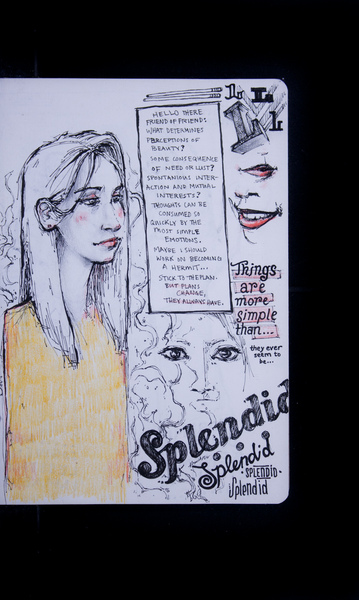 HELLO THERE
FRIEND OF FRIENDS
WHAT DETERMINES
PERCEPTIONS OF
BEAUTY?
SOME CONSEQUENCE
OF NEED OR LUST?
SPONTANIOUS INTER-
ACTION AND MUTUAL
INTERESTS?
THOUGHTS CAN BE
CONSUMED SO
QUICKLY BY THE
MOST SIMPLE
EMOTIONS.
MAYBE I SHOULD
WORK IN BECOMING
A HERMIT...
STICK TO THE PLAN.
BUT PLANS
CHANGE,
THEY ALWAYS HAVE.
Things
are
more
simple
than...
they ever
seem to
be...
Splendid
Splendid
SPLENDID
Splendid